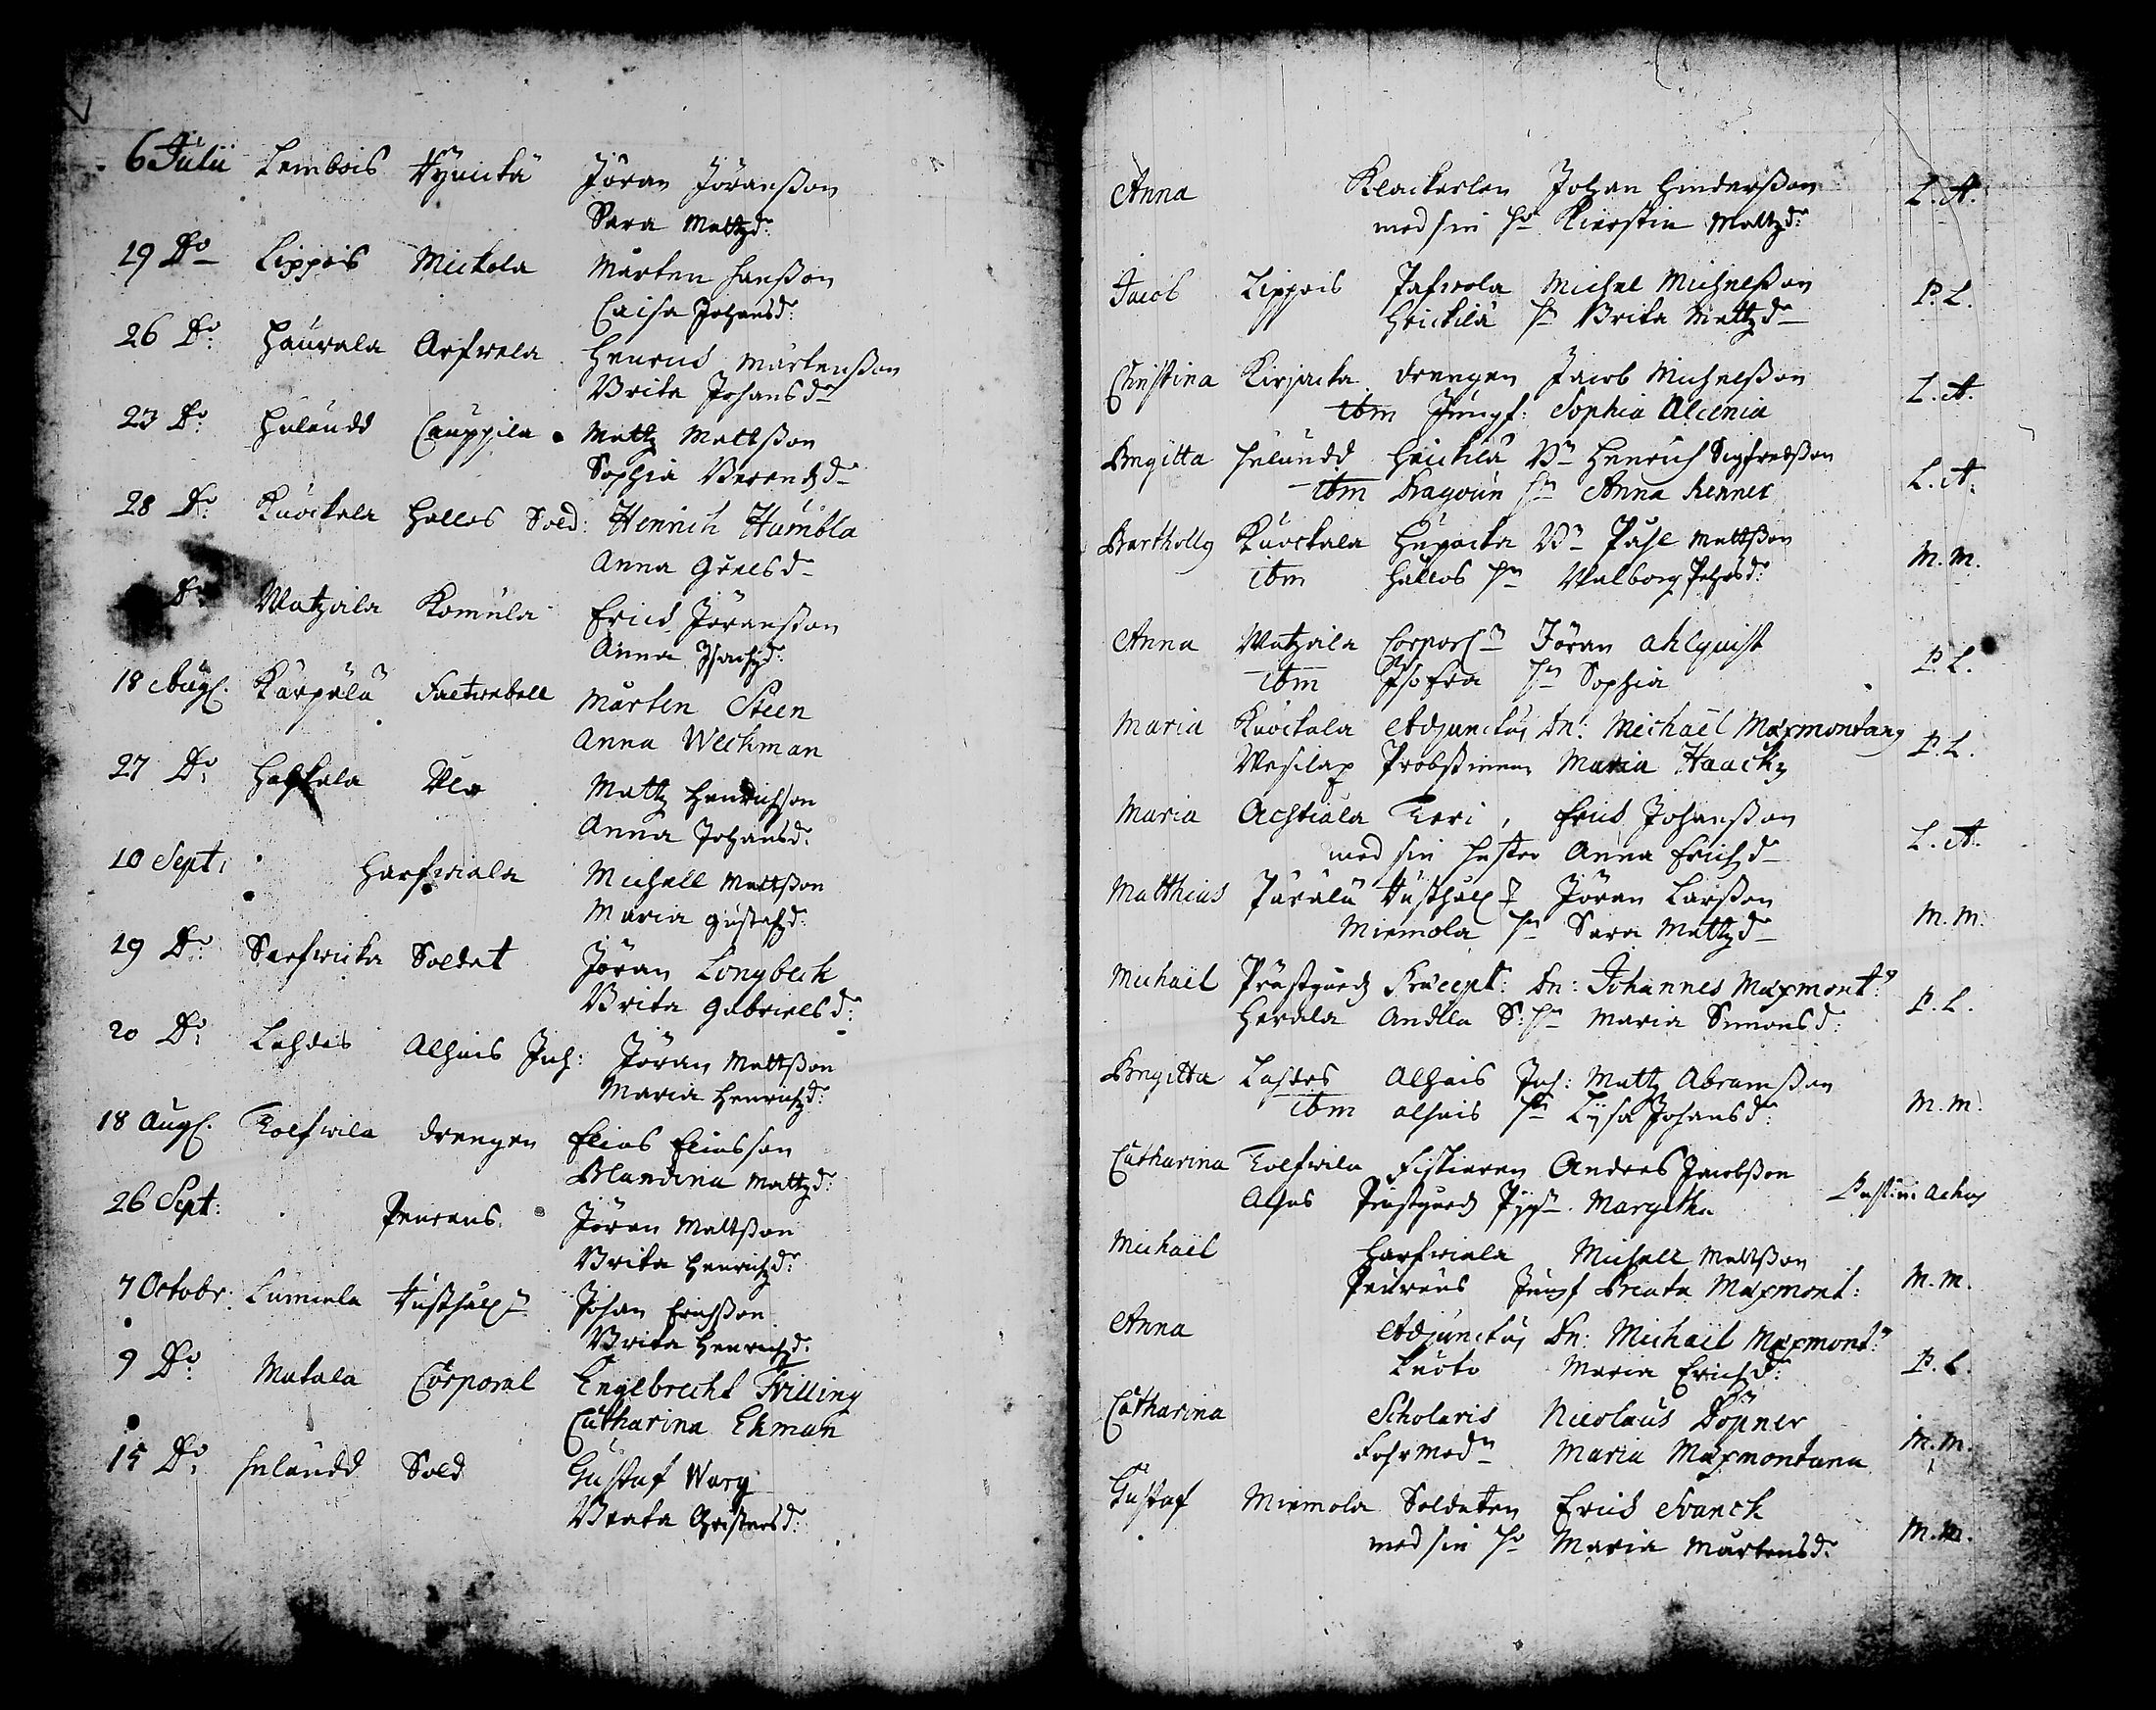 6 Julii Lembois Hyrickä Jöran Jöransson
Sara Mattzdr
19 Do Lippois Mickola Mårten Hansson
Caisa Johansdr:
26 Do: Haurala Arfwela Henric Mårtensson
Brita Johansdr
23 Do: Helaudd Cauppila Mattz Mattsson
Sophia Berendzdr
28 Do: Kuockala Hallos Sold: Henrich Humbla
Anna Greelsdr
Do Watzaila Komula Erich Jöransson
Anna Isachzdr:
18 Aug. Kärpälä Mårten Steen
Anna Weckman
27 Do: Hahkala Ylö Mattz Henrichson
Anna Johansdr:
10 Sept: Harfwiala Michell Mattsson
Maria Gustafzdr:
19 Do: Sarfwicka Soldat Jöran Longbeck
Brita Gabrielsdr:
20 Do: Lahdis Alhais Inh: Jöran Mattsson
Maria Henrichzdr:
18 Aug. Kolfwila drengen Elias Eliasson
Blandina Mattzdr:
26 Sept: Peurans Jöran Mattsson
Brita Henrichzdr:
7 Octobr: Lumiala Husthålln Johan Erichsson
Brita Henrichzdr.
9 Do: Matala Corporal Engelbrecht Frilling
Catharina Ekman
15 Do: Helaudd Sold Gustaf Warg
Beata Christersdr:
Anna Klackarlen Johan Hindersson L. A.
med sin Ho Kierstin Mattzdr
Jacob Lippois Pafwola Michel Michelsson P. L.
Heickilä Hu Brita Mattzdr
Christina Kirjacka drengen Jacob Michelsson L. A.
ibm Jungf: Sophia Alcenia
Brigitta Helaudd Heickilä Bn Henrich Sigfredsson L. A.
ibm Dragoun Hu Anna Renner
Bartholly Kuockala Hupacka Bn Påhl Mattsson M. M.
ibm Hallos Hu Walborg Johansdr:
Anna Watzaila Corporln Jöran Ahlquist P. L.
ibm Isofra Hu Sophia
Maria Kuockala Adjunctus Dn: Michaël Maxmontany P. L.
Wesilax Probstinnan Maria Haacks
Maria Achtiala Keri, Erich Johansson L. A.
med sin Hustro Anna Erichzdr
Matthias Pärälä Husthålln Jöran Larsson M. M.
Miemola Hu Sara Mattzdr
Michaël Prästgårds Præcept: Dn: Johannes Maxmont: P. L.
Herrala Andla S: Hu Maria Simonsdr:
Brigitta Lahdes Alhais Inh: Mattz Abramsson M. M.
ibm Alhais Hu Lysa Johansdr:
Catharina Kolfwila Fiskieren Anders Jacobsson
Alhas Prästgårds Pigan Margetha
Michaël Harfwiala Michell Mattsson M. M.
Peurans Jungf Beata Maxmont:
Anna Adjunctus Dn: Michaël Maxmont: P. L.
Luoto Maria Erichzdr:
Catharina Scholaris Nicolaus Döpner M. M.
Maria Maxmontana
Gustaf Miemola Soldaten Erich Svanck M. M.
med sin Ho Maria Mårtensdr: